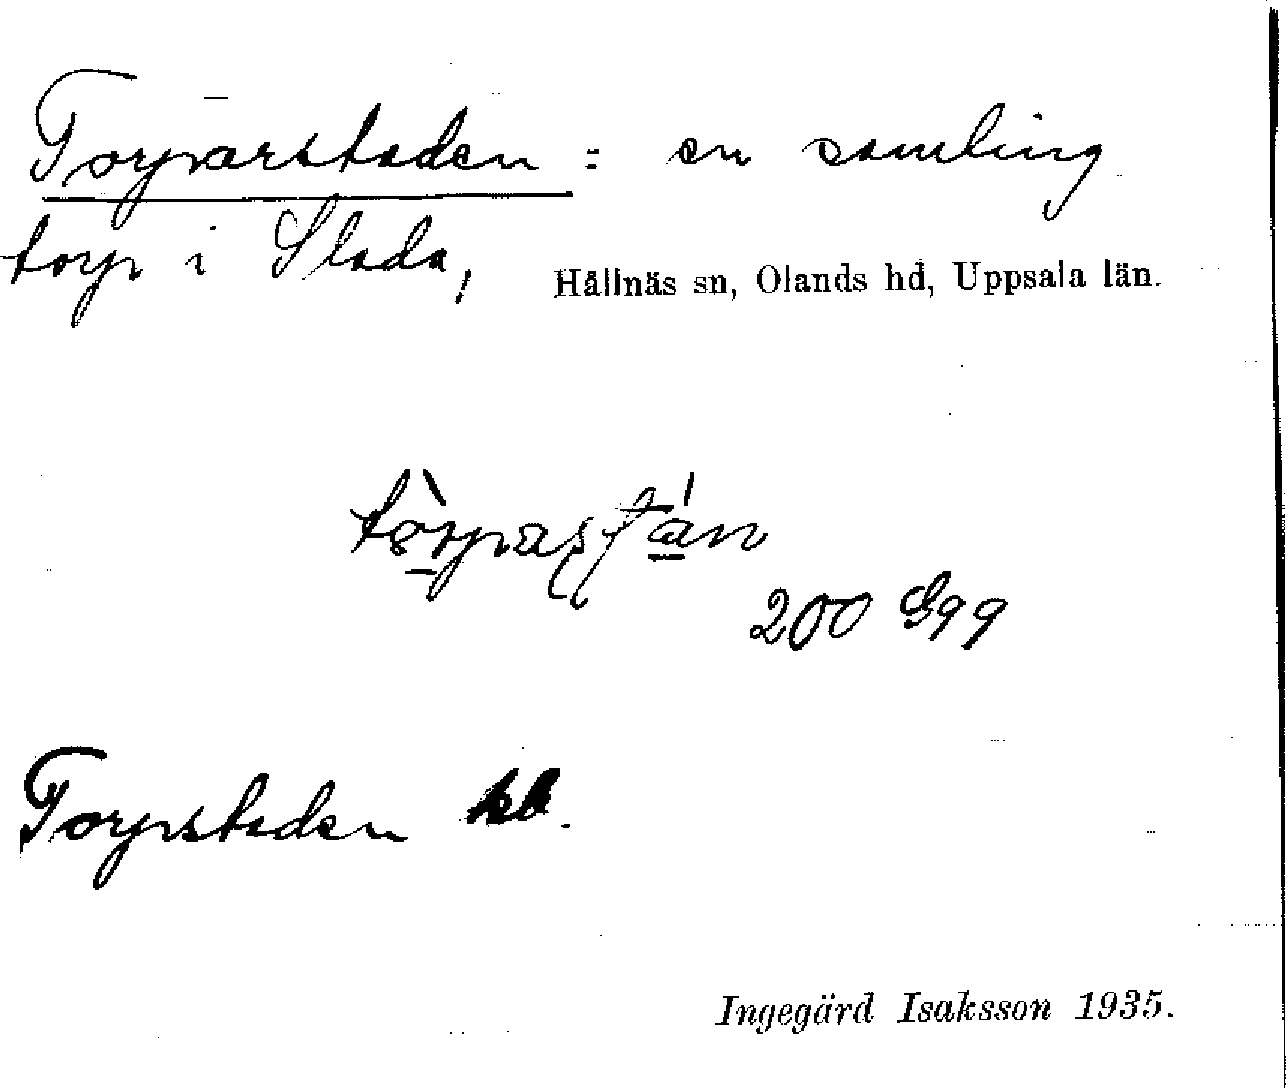 Torparstaden : en samling
torp i Slada, Hållnäs sn, Olands hd, Uppsala län.
200 G99
Torpstaden kb.
Ingegärd Isaksson 1935.